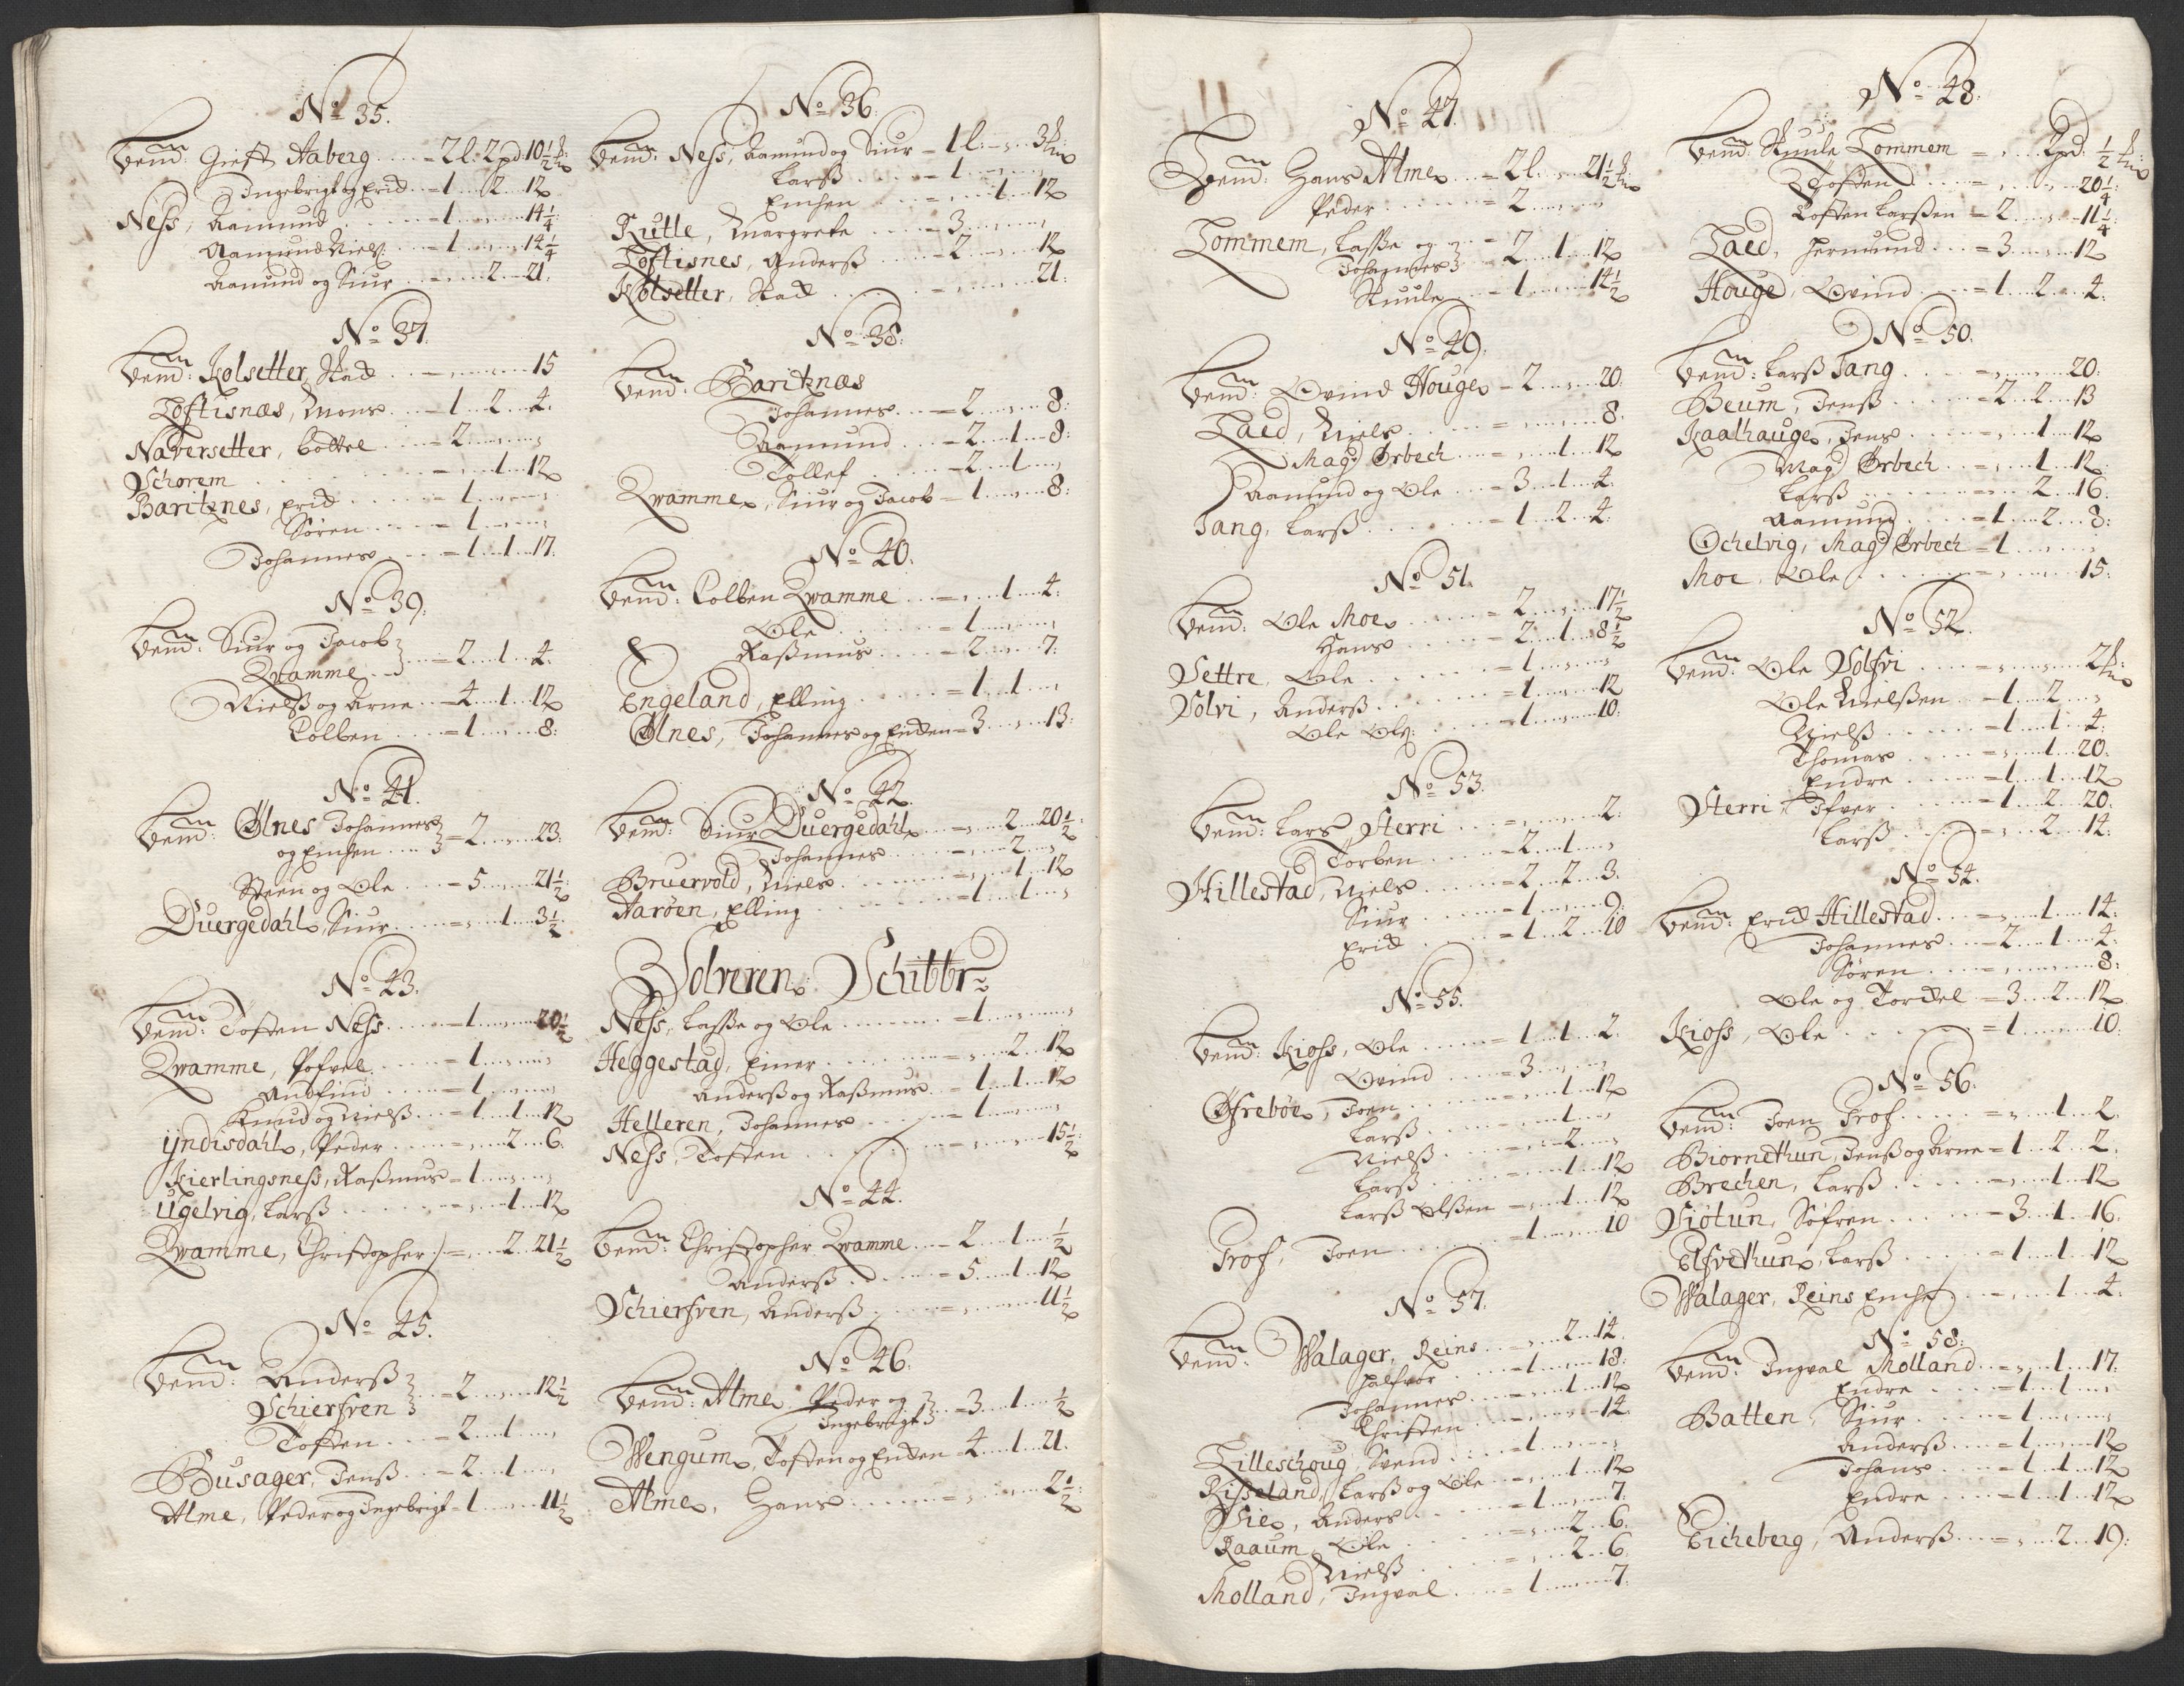 No 35.
Bemd: Gieft Aaberg ..... = 2 l: 2 pd: 10 1/2 ℔:
Ingebrigt og Erich = 1 .. 2 .. 12
Ness, Aamund ..... = 1 ..... 14 1/4
Aamund Niels: ... = 1 ..... 14 1/4
Aamund og Siur ... = „ .. 2 .. 21.
No 37.
Bemd: Kolsetter, Stad ... = „ ..... 15
Loftisnæs, Mons ... = 1 .. 2 .. 4.
Naversetter, Bottel .... = 2 ..... „
Schorem ..... = „ .. 1 .. 12
Baritznes, Erich ..... = 1 ..... „
Søren ..... = 1 ..... „
Johannes .... = 1 .. 1 .. 17.
No 39.
Bemd: Siur og Jacob
Qvamme .... = 2 .. 1 .. 4.
Nielß og Arne .. = 4 .. 1 .. 12
Colben ..... = 1 .. „ .. 8:
No 41.
Bemd: Ølnes Johannes
og Emhen .... = 2 .. „ .. 23.
Steen og Ole .... = 5 ..... 21 1/2
Duergedahl, Siur .... = „ .. 1 .. 3 1/2
No 43.
Bemd: Tosten Ness ..... = 1 ..... 20 1/2
Qvamme, Pofvel ..... = 1 ..... „
Andfind ..... = 1 ..... „
Knud og Nielß ... = 1 .. 1 .. 12
Yndisdahl, Peder ..... = „ .. 2 .. 6.
Kierlingsness, Raßmus = 1 ..... „
Ugelvig, Larß ..... = „ .. 1 .. 12
Qvamme, Christopher = „ .. 2 .. 21 1/2
No 45.
Bemd: Anderß
Schierfven ... = 2 ..... 12 1/2
Tosten ... = 2 .. 1 .. „
Busager, Jenß ... = 2 .. 1 .. „
Alme, Peder og Ingebrigt = 1 ..... 11 1/2
No 36.
Bemd: Ness, Aamund og Siur = 1 l: .. „ .. 3 ℔:
Larß ..... = 1 ..... „
Emhen ..... = „ .. 1 .. 12
Rutle, Margrete ..... = 3 ..... „
Loftisnes, Anderß ..... = 2 ..... 12
Kolsetter, Stad ..... = „ ..... 21:
No 38.
Bemd: Baritznæs
Johannes ... = 2 ..... 8:
Aamund ... = 2 .. 1 .. 8:
Tollef ..... = 2 .. 1 .. „
Qvamme, Siur og Jacob = 1 ..... 8:
No 40.
Bemd: Colben Qvamme ... = „ .. 1 .. 4:
Ole ..... = 1 ..... „
Raßmus ..... = 2 ..... 7:
Engeland, Elling ..... = 1 .. 1 .. „
Ølnes, Johannes og Endden = 3 ..... 13:
No 42.
Bemd: Siur Duergedahl ... = „ .. 2 .. 20 1/2
Johannes ..... = „ .. 2 .. „
Bruervold, Niels ..... = „ .. 1 .. 12
Aarøen, Elling ..... = „ .. 1 .. „
Solveren Schibbr:
Ness, Lasse og Ole ..... = 1 ..... „
Heggestad, Einer ..... = „ .. 2 .. 12
Anderß og Raßmus ... = 1 .. 1 .. 12
Helleren, Johannes ..... = 1 ..... „
Ness, Tosten ..... = „ ..... 15 1/2
No 44.
Bemd: Christopher Qvamme ... = 2 .. 1 .. 1/2
Anderß ..... = 5 .. 1 .. 12
Schierfven, Anderß ..... = „ ..... 11 1/2
No 46.
Bemd: Alme, Peder og
Ingebrigt .. = 3 .. 1 .. 1/2
Wengum, Tosten og Endden = 4 .. 1 .. 21.
Alme, Hans ..... = „ ..... 2 1/2
No 47.
Bemd: Hans Alme ... = 2 l: .. „ .. 21 1/2 ℔
Peder ..... = 2 ..... „
Lommem, Lasse og
Johannes = 2 .. 1 .. 12
Stuule ... = 1 ..... 14 1/2
No 49.
Bemd: Øvind Houge = 2 ..... 20.
Laed, Niels ..... = „ ..... 8.
Mag: Ørbech ... = „ .. 1 .. 12
Aamund og Ole ... = 3 .. 1 .. 4.
Tang, Larß ..... = 1 .. 2 .. 4.
No 51.
Bemd: Ole Moe ..... = 2 ..... 17 1/2
Hans ..... = 2 .. 1 .. 8 1/2
Settre, Ole ..... = 1 ..... „
Solvi, Anderß ..... = 1 ..... 12
Ole Ols: ..... = 1 ..... 10.
No 53.
Bemd: Lars Sterri ... = „ ..... 2.
Torben ..... = 2 .. 1 .. „
Hillestad, Niels ..... = 2 .. 2 .. 3.
Siur ..... = 1 ..... 9.
Erich ..... = 1 .. 2 .. 10
No 55.
Bemd: Kioss, Ole ..... = 1 .. 1 .. 2.
Øvind ..... = 3 ..... „
Øfrebøe, Joen ..... = „ .. 1 .. 12
Larß ..... = „ .. 1 .. „
Nielß ..... = „ .. 2 .. „
Larß ..... = „ .. 1 .. 12
Larß Olßen = „ .. 1 .. 12
Grof, Joen ..... = 1 ..... 10
No 57.
Bemd: Walager, Reins ... = „ .. 2 .. 14.
Halfvor ... = 1 ..... 18.
Johannes ... = „ .. 1 .. 12
Christen ... = „ ..... 14.
Lilleschoug, Svend ... = 1 ..... „
Risseland, Larß og Ole ... = „ .. 1 .. 12
Sie, Anders ..... = 1 ..... 7.
Raaum, Ole ..... = „ .. 2 .. 6.
Nielß ..... = „ .. 2 .. 6
Molland, Ingval ..... = 1 ..... 7.
No 48.
Bemd: Stuule Lommem = „ .. 2 pd: 1/2 ℔:
Tosten ..... = „ ..... 20 1/4
Tosten Larßen = 2 ..... 11 1/4
Laed, Hermund ... = 3 ..... 12
Houge, Øvind ..... = 1 .. 2 .. 4.
No 50.
Bemd: Larß Tang ..... = „ ..... 20:
Beum, Jenß ..... = 2 .. 2 .. 13
Kaalhauge, Jens ..... = „ .. 1 .. 12
Mag: Ørbech ... = „ .. 1 .. 12.
Larß ..... = „ .. 2 .. 16.
Aamund ..... = 1 .. 2 .. 8:
Ochelvig, Mag: Ørbech = 1 ..... „
Moe, Ole ..... = „ ..... 15:
No 52.
Bemd: Ole Solfvi ..... = „ ..... 2 ℔:
Ole Nielßen ... = 1 .. 2 .. „
Nielß ..... = 1 .. 1 .. 4.
Thomas ..... = „ .. 1 .. 20.
Endre ..... = 1 .. 1 .. 12
Sterri, Ifver ..... = 1 .. 2 .. 20.
Larß ..... = „ .. 2 .. 14.
No 54.
Bemd: Erich Hillestad ... = „ .. 1 .. 14.
Johannes ... = 2 .. 1 .. 4.
Søren ..... = „ ..... 8:
Ole og Torckel = 3 .. 2 .. 12
Kioss, Ole ..... = 1 ..... 10.
No 56.
Bemd: Joen Grof ..... = „ .. 1 .. 2.
Biornethun, Jenß og Arne = 1 .. 2 .. 2.
Brechen, Larß ..... = „ .. 1 .. 12
Siøtun, Søfren ..... = 3 .. 1 .. 16.
Elfvethun, Larß ..... = 1 .. 1 .. 12
Walager, Reins = „ .. 1 .. 4.
No 58.
Bemd: Ingval Molland ... = „ .. 1 .. 17.
Endre ..... = 1 .. 1 .. „
Batten, Siur ..... = 1 ..... „
Anderß ..... = 1 ..... 12
Johans ..... = 1 .. 1 .. 12
Endre ..... = 1 .. 1 .. 12
Eicheberg, Anderß ... = „ .. 2 .. 19: